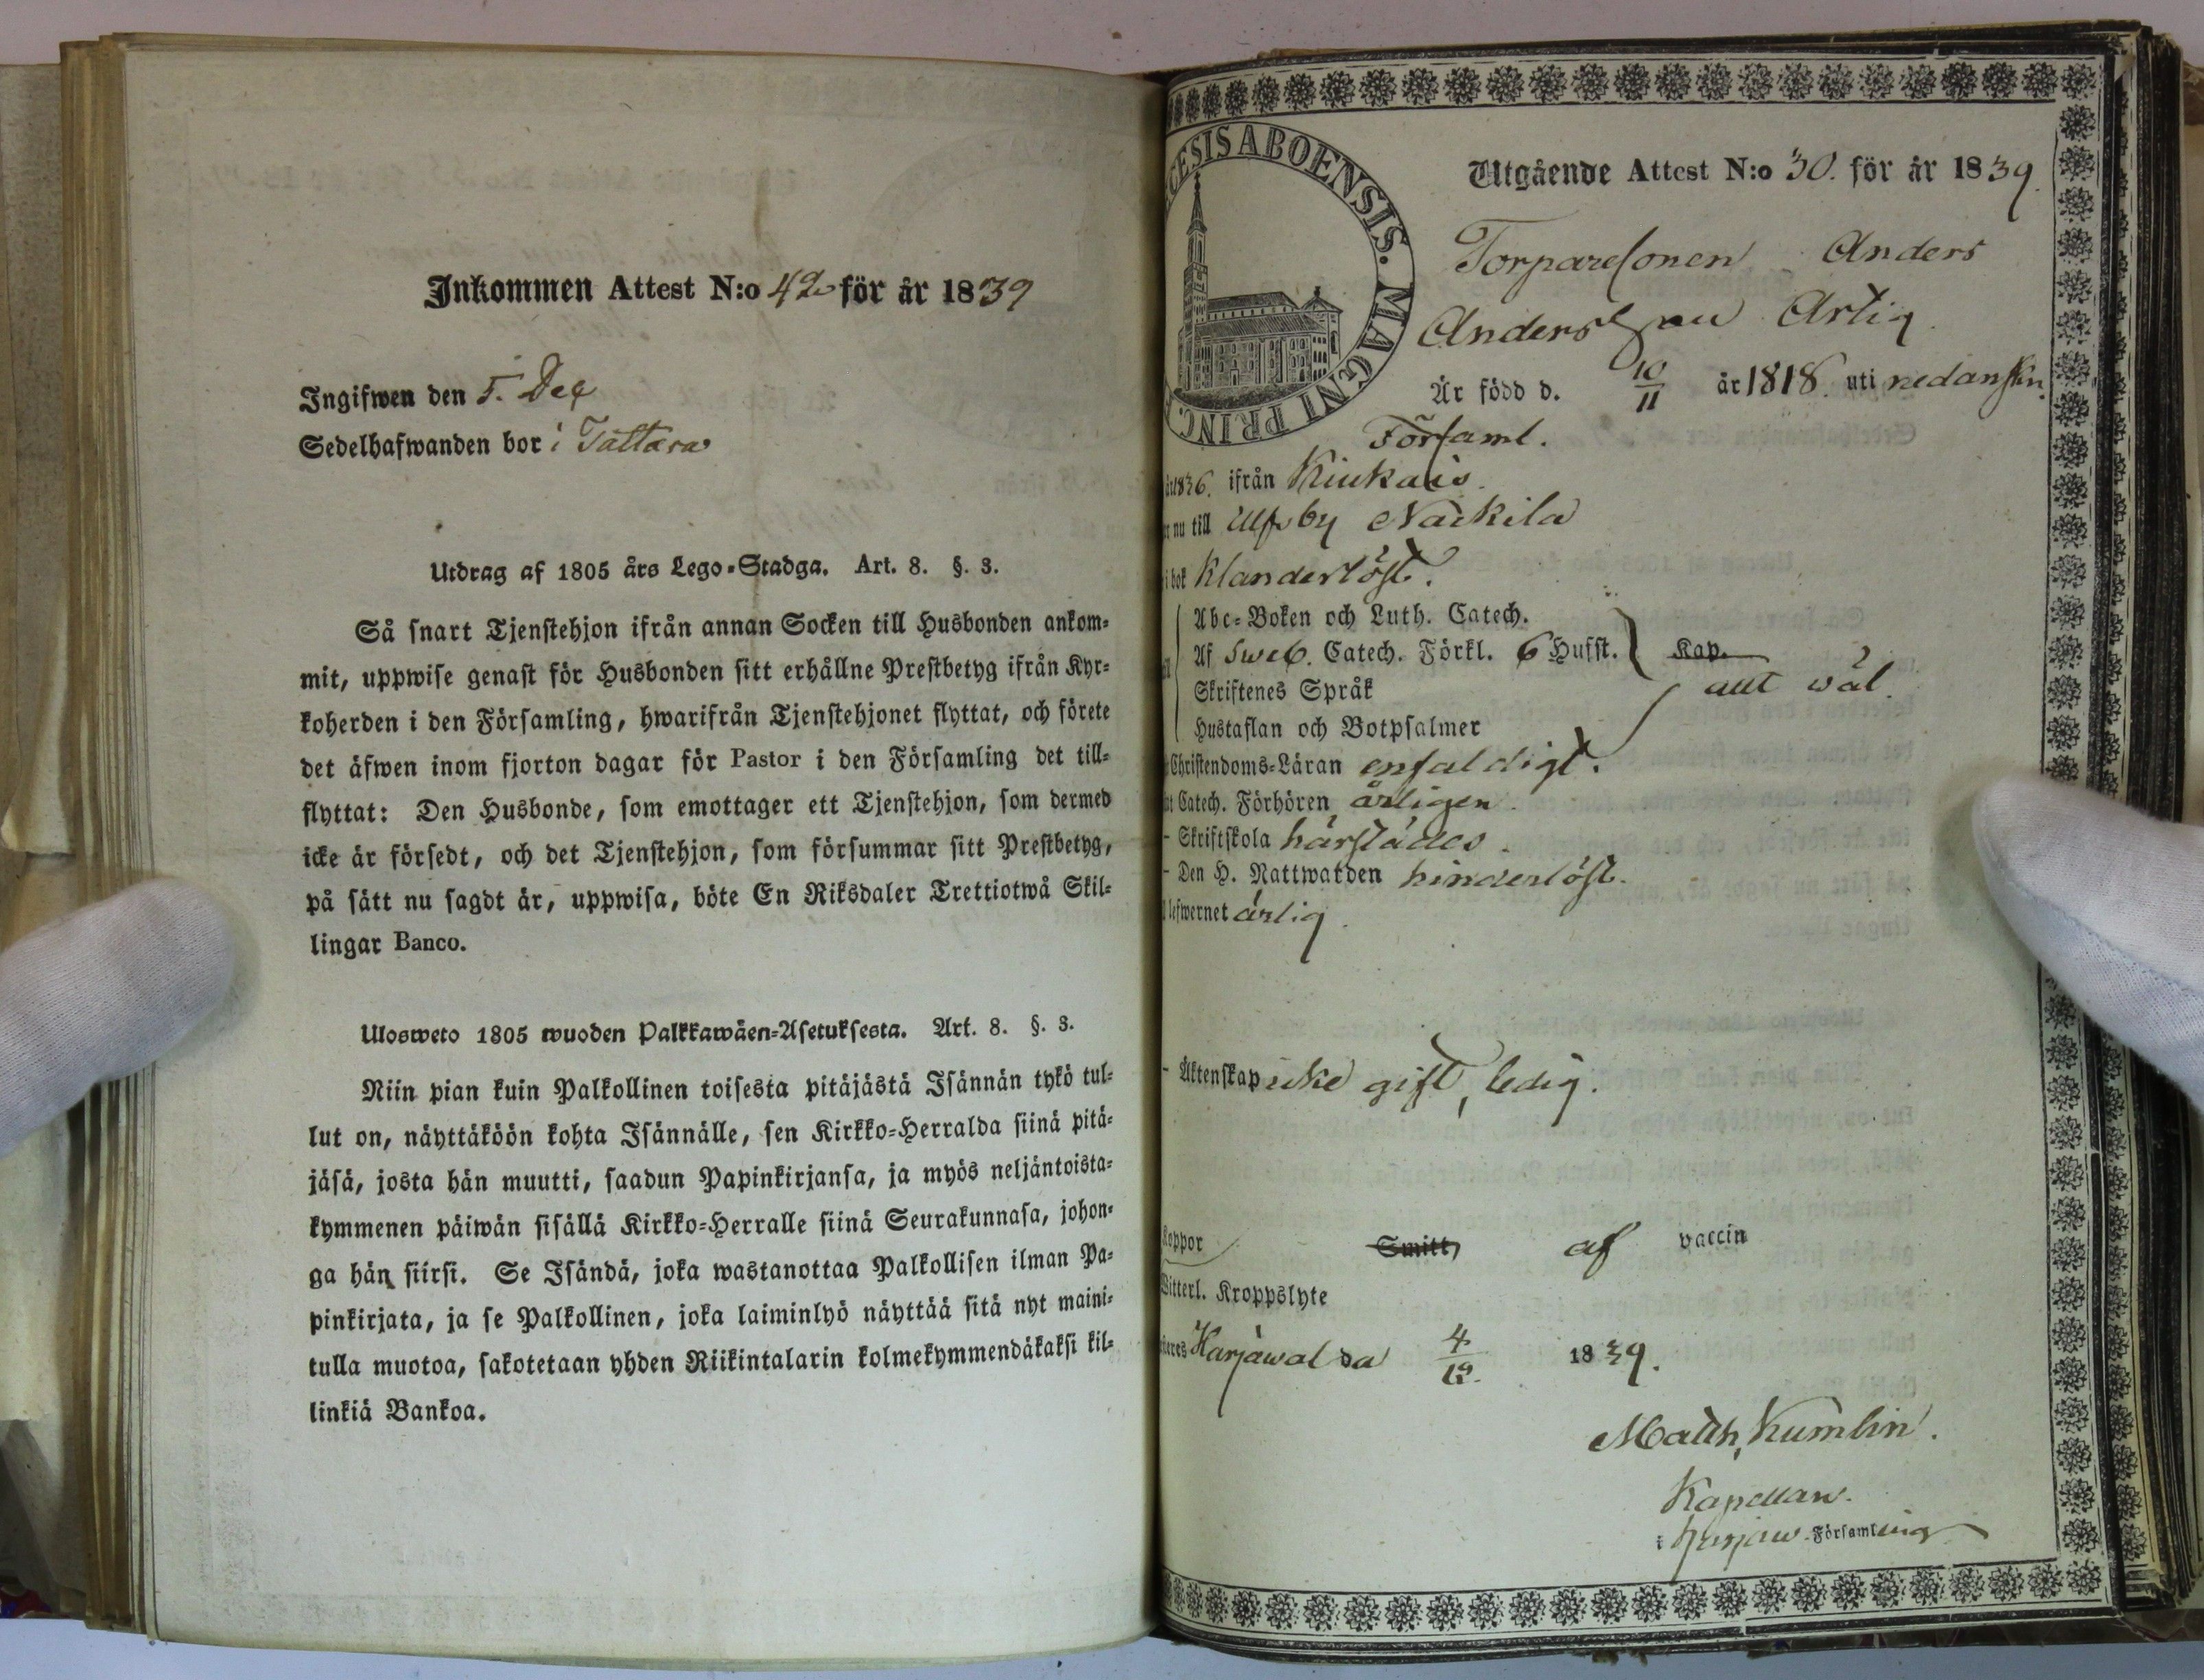 Inkommen Attest N:o 42 för år 1839
Ingifwen den 5. Dec
Sedelhafwanden bor i Tattara
Utdrag af 1805 års Lego-Stadga. Art. 8. §. 3.
Så snart Tjenstehjon ifrån annan Socken till Husbonden ankom-
mit, uppwise genast för Husbonden sitt erhållne Prestbetyg ifrån Kyr-
koherden i den Församling, hwarifrån Tjenstehjonet flyttat, och förete
det äfwen inom fjorton dagar för Pastor i den Församling det till-
flyttat: Den Husbonde, som emottager ett Tjenstehjon, som dermed
icke är försedt, och det Tjenstehjon, som försummar sitt Prestbetyg,
på sätt nu sagdt är, uppwisa, böte En Riksdaler Trettiotwå Skil-
lingar Banco.
Ulosweto 1805 wuoden Palkkawäen-Asetuksesta. Art. 8. §. 3.
Niin pian kuin Palkollinen toisesta pitäjästä Isännän tykö tul-
lut on, näyttäköön kohta Isännälle, sen Kirkko-Herralda siinä pitä-
jäsä, josta hän muutti, saadun Papinkirjansa, ja myös neljäntoista-
kymmenen päiwän sisällä Kirkko-Herralle siinä Seurakunnasa, johon-
ga hän siirsi. Se Isändä, joka wastanottaa Palkollisen ilman Pa-
pinkirjata, ja se Palkollinen, joka laiminlyö näyttää sitä nyt maini-
tulla muotoa, sakotetaan yhden Riikintalarin kolmekymmendäkaksi kil-
linkiä Bankoa.
CESIS ABOENSIS. MAGNI PRINC
Utgående Attest N:o 30. för år 1839.
Torparesonen Anders
Andersson Artig
Är född d. 10/11 år 1818. uti nedanskn.
Församl.
1836. ifrån Kiukais.
nu till Ulfsby Nackila
i bok klanderlöst.
Abc-Boken och Luth. Catech.
Af Sweb. Catech. Förkl. 6 Hufst. Kap.
Skriftenes Språk allt wäl.
Hustaflan och Botpsalmer
Christendoms-Läran enfaldigt.
Catech. Förhören årligen.
- Skriftskola härstädes.
- Den H. Nattwarden hinderlöst.
lefwernet ärlig.
- Äktenskap icke gift, ledig.
Koppor Smitt, af vaccin
Witterl. Kroppslyte
Harjawalda 4/12. 1839.
Matth. Kumlin.
Kapellan.
i Harjaw. Församling